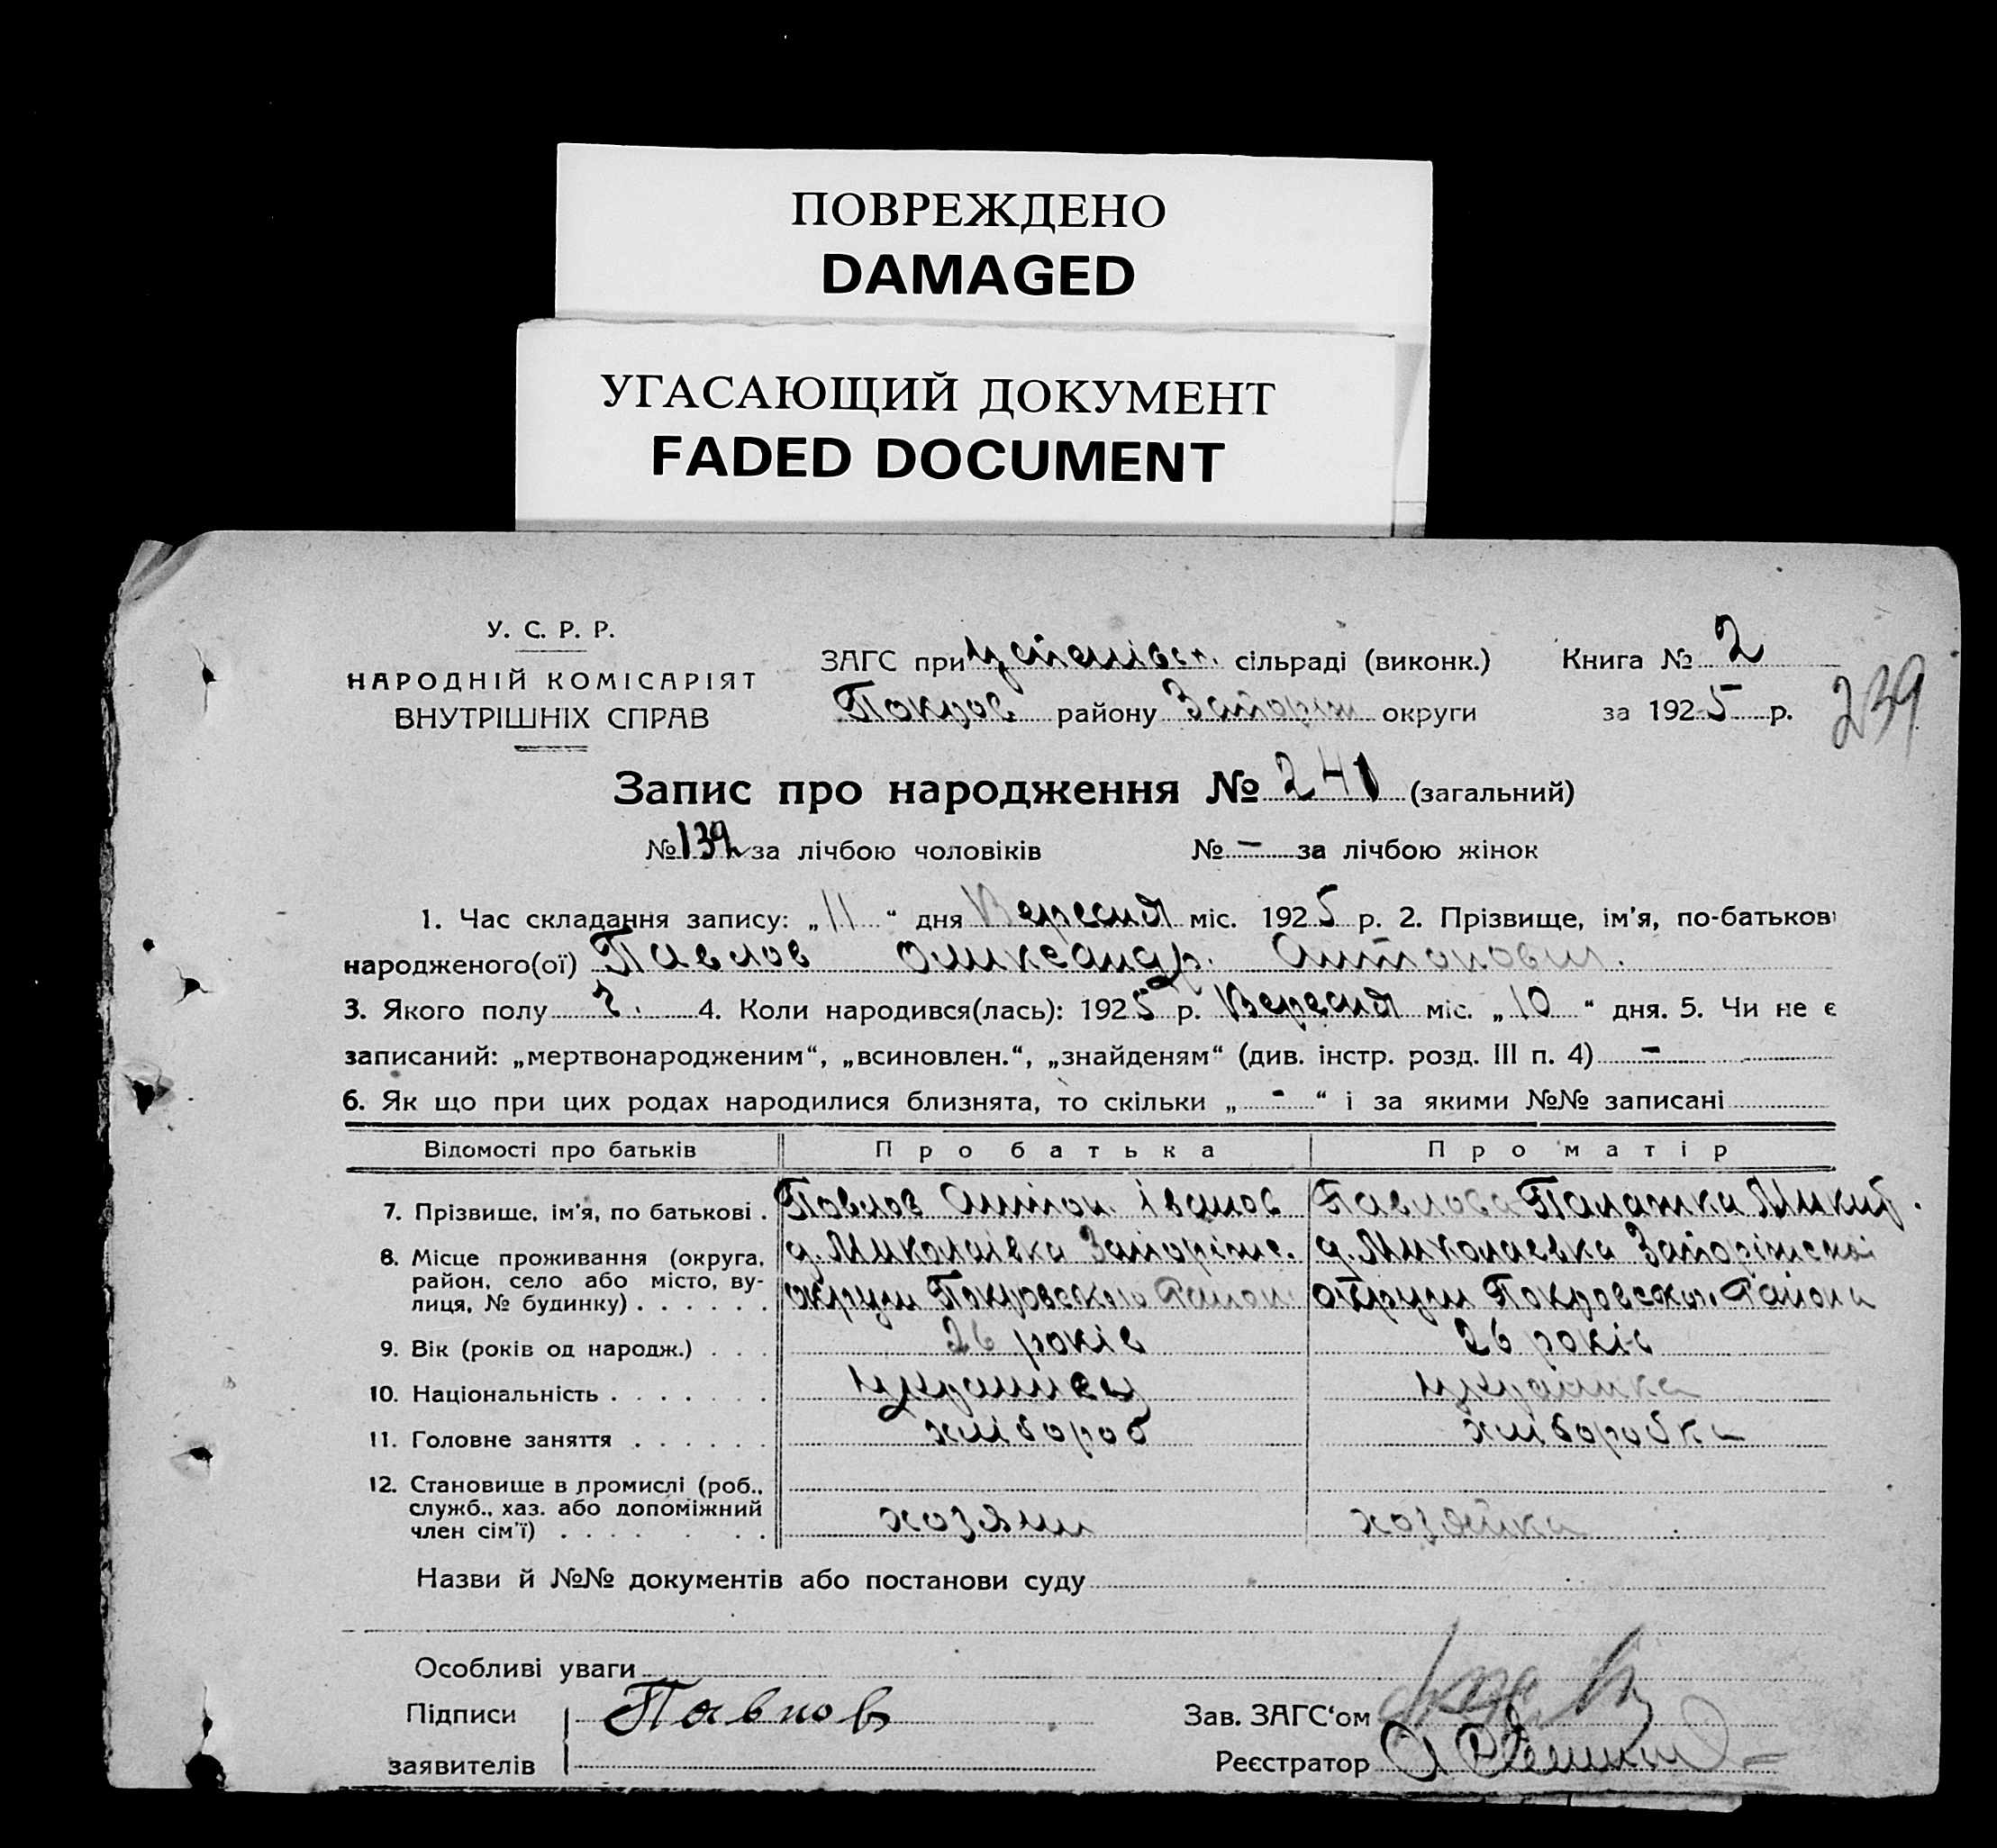 ПОВРЕЖДЕНО
DAMAGED
УГАСАЮЩИЙ ДОКУМЕНТ
FADED DOCUMENT
У. С. Р. Р.
НАРОДНІЙ КОМІСАРІЯТ
ВНУТРІШНІХ СПРАВ
ЗАГС при сільраді (виконк.)
Покров району Запоріж округи
Книга № 2
за 1925 р.
239
Запис про народження № 241 (загальний)
№ 139 за лічбою чоловіків № - за лічбою жінок
1. Час складання запису: „11“ дня Вересня міс. 1925 р. 2. Прізвище, ім'я, по-батькові
народженого(ої) Павлов Олександр Антонович.
3. Якого полу ч. 4. Коли народився(лась): 1925 р. Вересня міс. „10“ дня. 5. Чи не є
записаний: „мертвонародженим“, „всиновлен.“, „знайденям“ (див. інстр. розд. III п. 4) -
6. Як що при цих родах народилися близнята, то скільки „-“ і за якими №№ записані
Відомості про батьків Про батька Про матір
7. Прізвище, ім'я, по батькові . Павлов Антон Іванов Павлова Палажка Микит.
8. Місце проживання (округа, район, село або місто, вулиця, № будинку) . . . . . . д. Миколаівка Запоріжс. д. Миколаевка Запоріжської
округи Покровського Район округи Покровськ. Района
9. Вік (років од народж.) . . . 26 років 26 років
10. Національність . . . . . . . украинец украінка
11. Головне заняття . . . . . . хлібороб хліборобка
12. Становище в промислі (роб., служб., хаз. або допоміжний член сім'ї) . . . . . . . хозяин хозяйка
Назви й №№ документів або постанови суду
Особливі уваги
Підписи Павлов Зав. ЗАГС'ом
заявителів Реєстратор